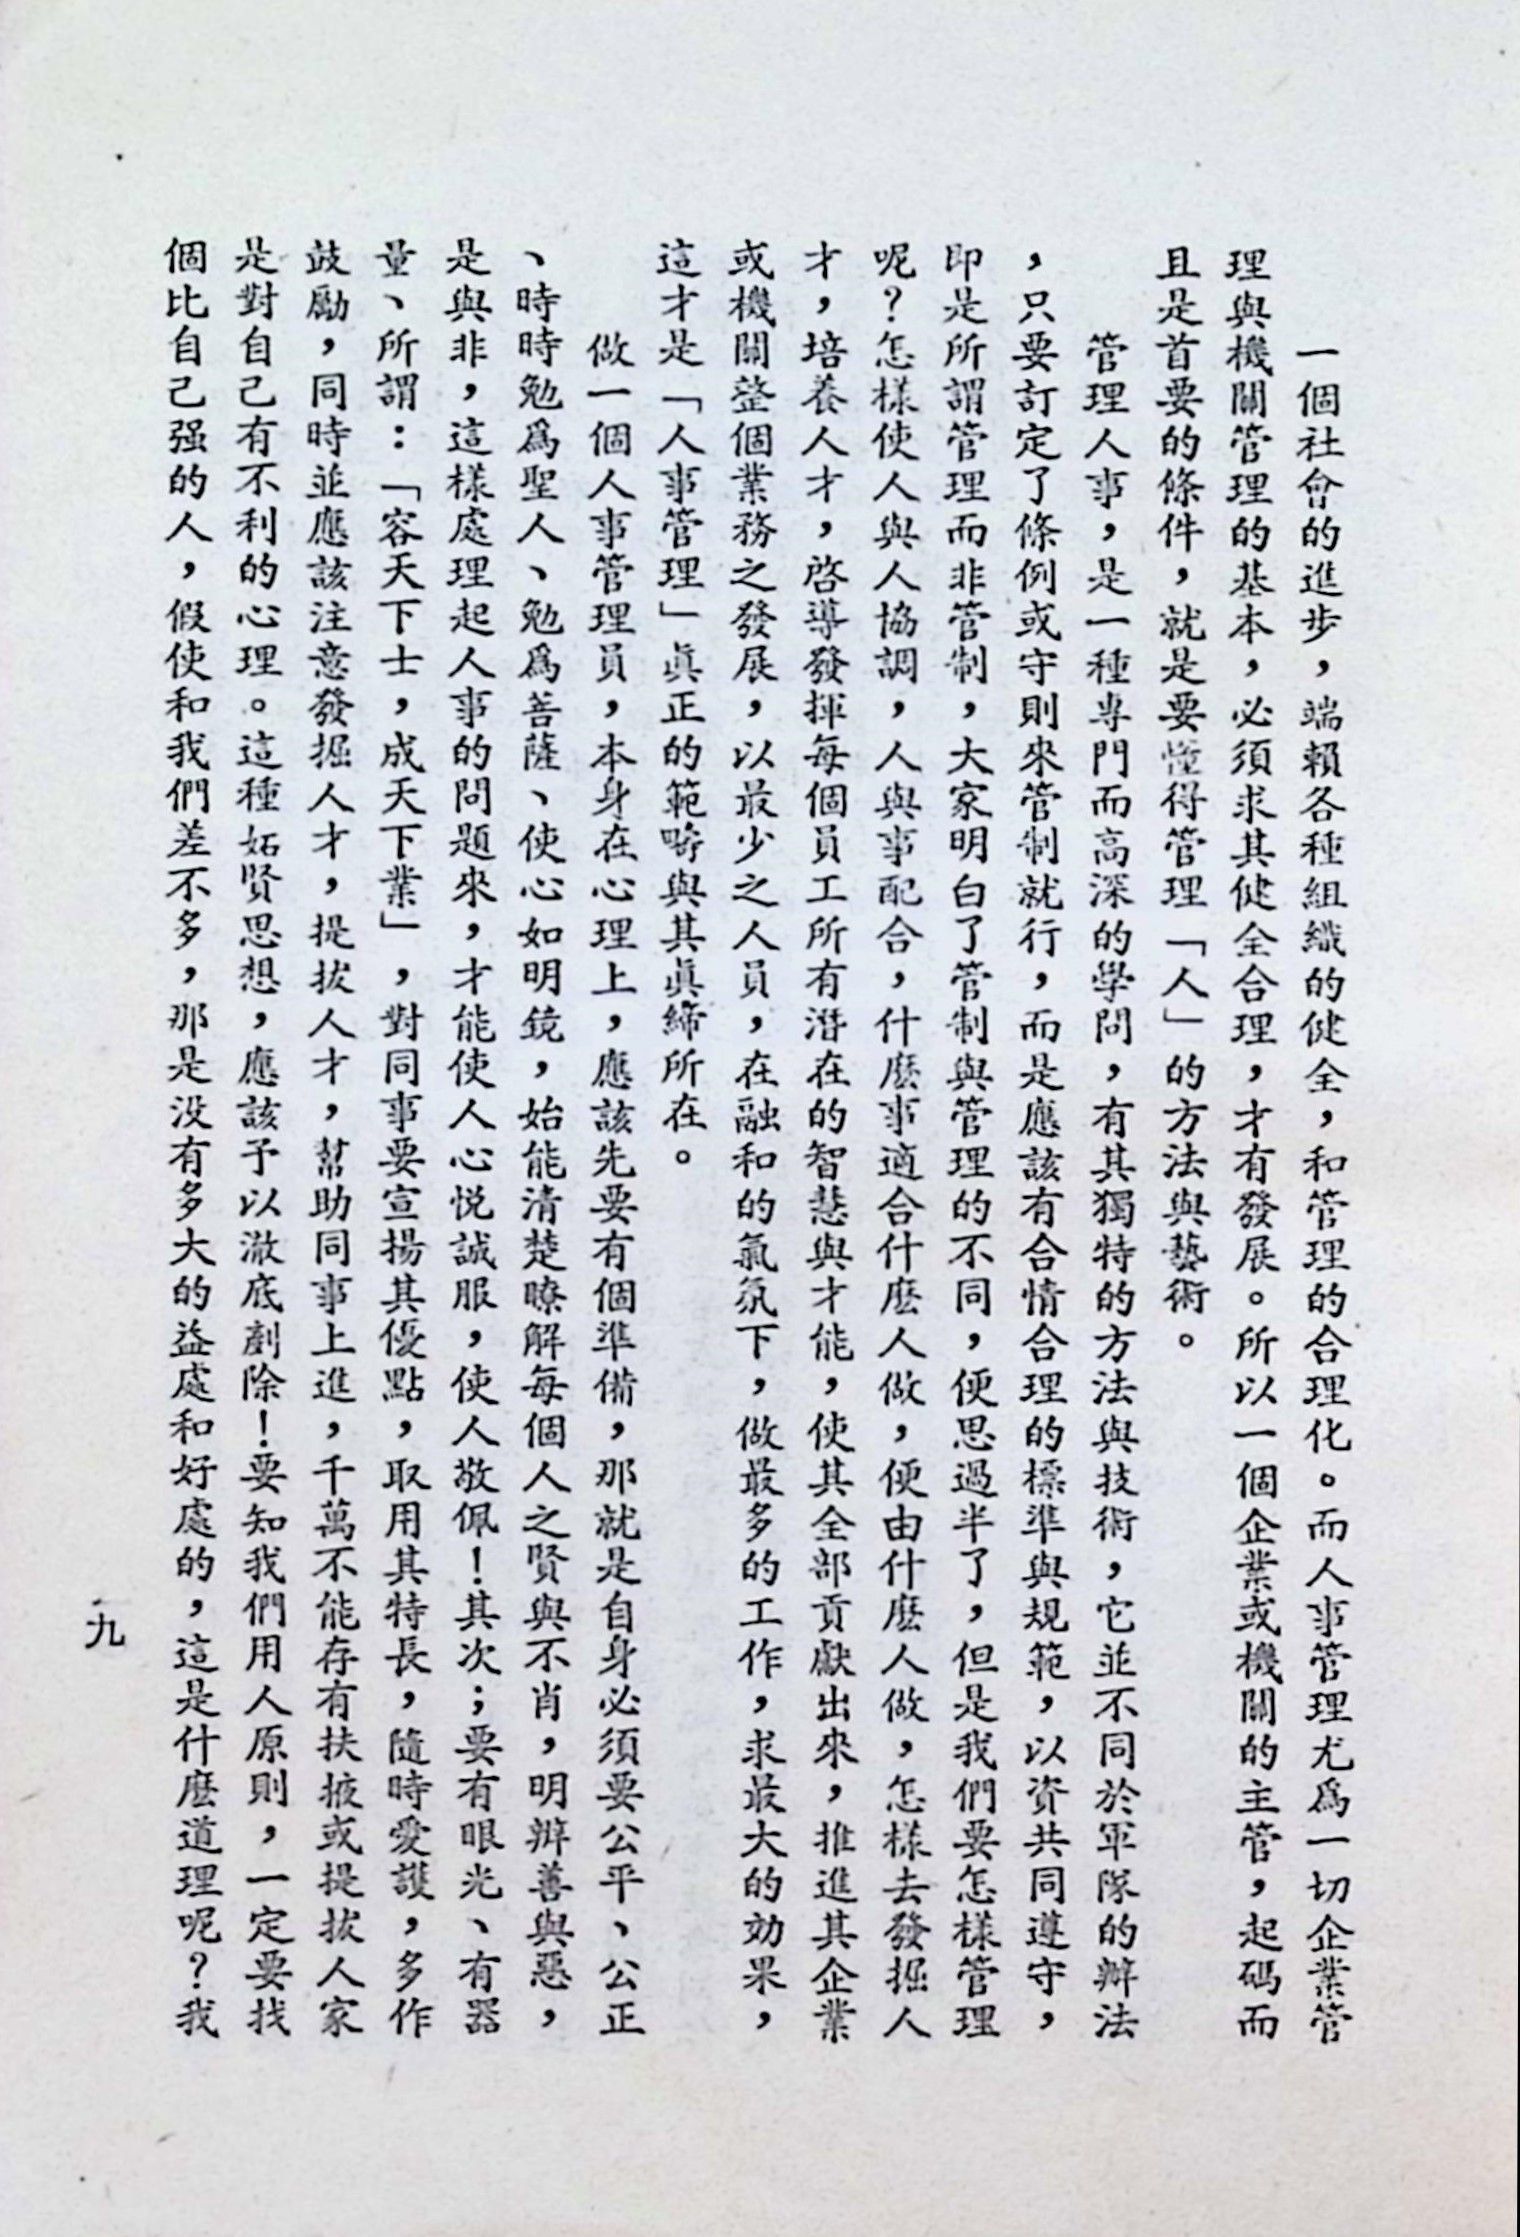 一個社會的進步，端賴各種組織的健全，和管理的合理化。而人事管理尤爲一切企業管
理與機關管理的基本，必須求其健全合理，才有發展。所以一個企業或機關的主管，起碼而
且是首要的條件，就是要懂得管理「人」的方法與藝術。
管理人事，是一種專門而高深的學問，有其獨特的方法與技術，它並不同於軍隊的辦法
，只要訂定了條例或守則來管制就行，而是應該有合情合理的標準與規範，以資共同遵守，
即是所謂管理而非管制，大家明白了管制與管理的不同，便思過半了，但是我們要怎樣管理
呢？怎樣使人與人協調，人與事配合，什麼事適合什麼人做，便由什麼人做，怎樣去發掘人
才，培養人才，啓導發揮每個員工所有潛在的智慧與才能，使其全部貢獻出來，推進其企業
或機關整個業務之發展，以最少之人員，在融和的氣氛下，做最多的工作，求最大的効果，
這才是「人事管理」眞正的範疇與其眞締所在。
做一個人事管理員，本身在心理上，應該先要有個準備，那就是自身必須要公平、公正
、時時勉爲聖人、勉爲菩薩、使心如明鏡，始能清楚暸解每個人之賢與不肖，明辨善與惡，
是與非，這樣處理起人事的問題來，才能使人心悅誠服，使人敬佩！其次；要有眼光、有器
量、所謂：「容天下士，成天下業」，對同事要宣揚其優點，取用其特長，隨時愛護，多作
鼓勵，同時並應該注意發掘人才，提拔人才，幫助同事上進，千萬不能存有扶掖或提拔人家
是對自己有不利的心理。這種妬賢思想，應該予以澈底剷除！要知我們用人原則，一定要找
個比自己强的人，假使和我們差不多，那是没有多大的益處和好處的，這是什麼道理呢？我
九